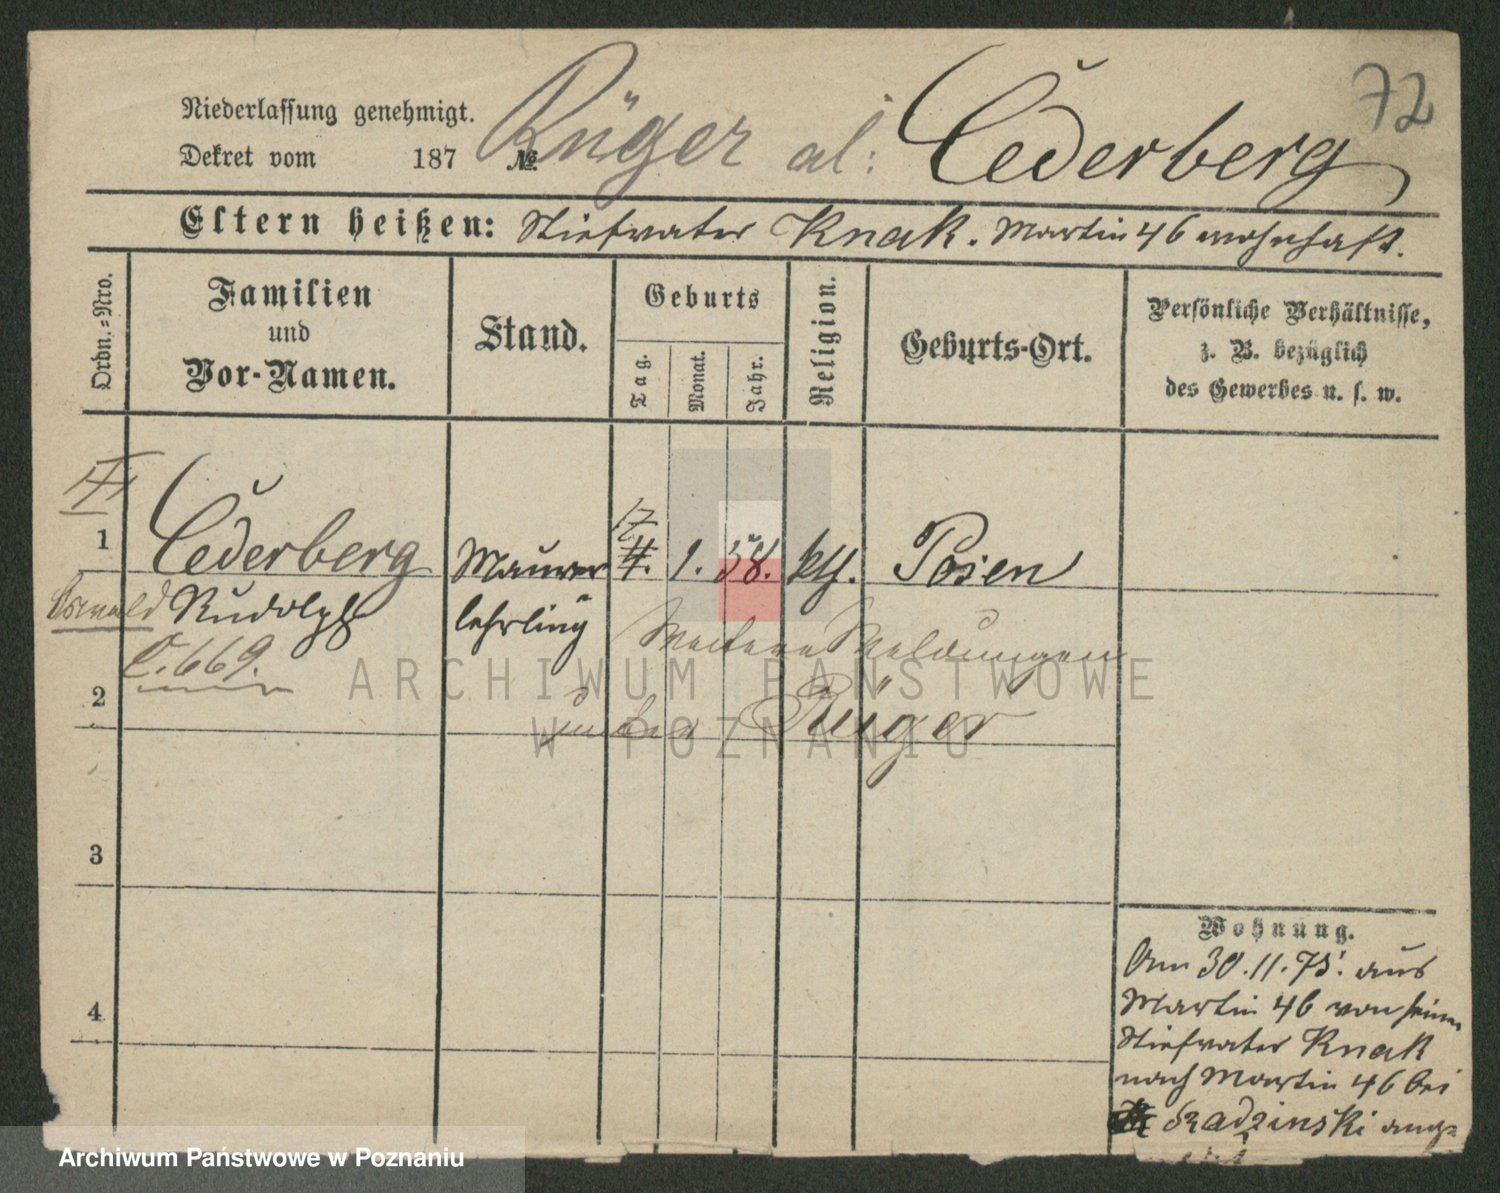 72
Niederlassung genehmigt.
Dekret vom 187 №
Rüger al: Cederberg
Eltern heißen: Stiefvater Knak. Martin 46 wohnhaft.
Ordn.=Nro.
Familien
und
Vor-Namen.
Stand.
Geburts
Tag.
Monat.
Jahr.
Religion.
Geburts-Ort.
Persönliche Verhältnisse,
z. B. bezüglich
des Gewerbes u. s. w.
1 Cederberg Maurer 17 4. 1. 58. kth. Posen
Oswald Rudolph lehrling
C. 669.
Weitere Meldungen
unter Rüger
2
3
4
Wohnung.
Am 30.11.75. aus
Martin 46 von seinem
Stiefvater Knak
nach Martin 46 bei
Szadzinski
ARCHIWUM PAŃSTWOWE
W POZNANIU
Archiwum Państwowe w Poznaniu